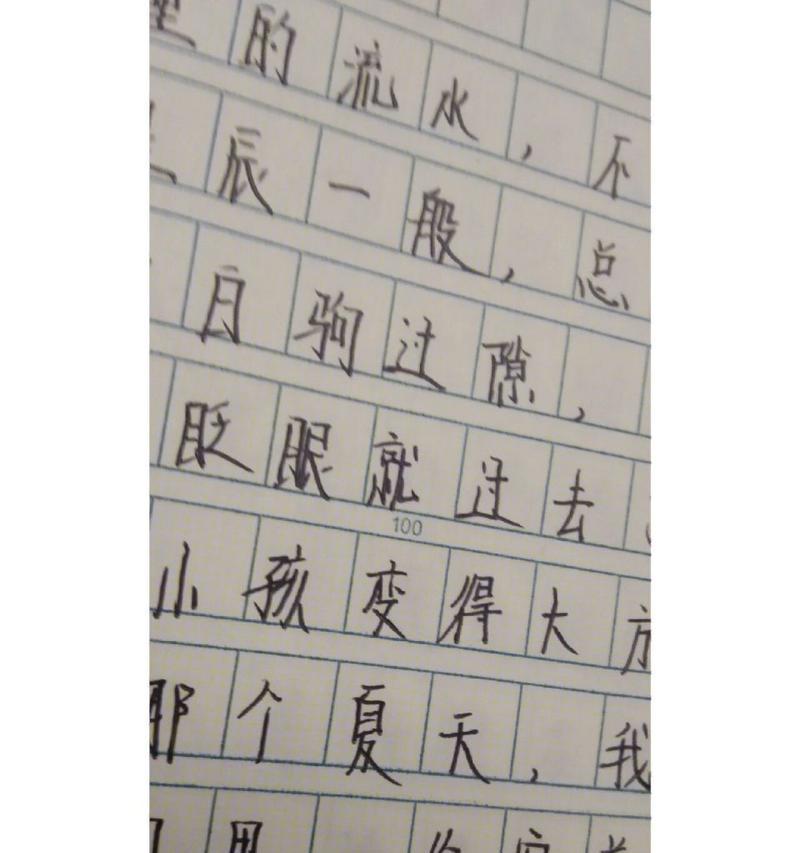 的流水，不
辰一般，总
白驹过隙，
眨眼就过去
100
小孩变得大方
那个夏天，我